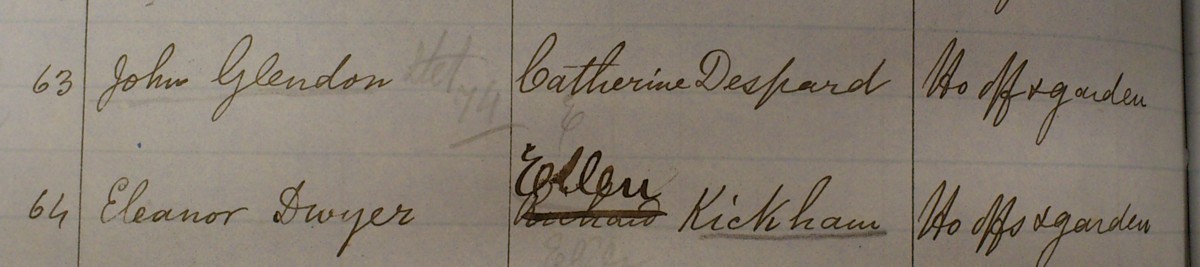 63 John Glendon Catherine Despard Ho off & garden
Ellen
64 Eleanor Dwyer Richard Kickham Ho offs & garden